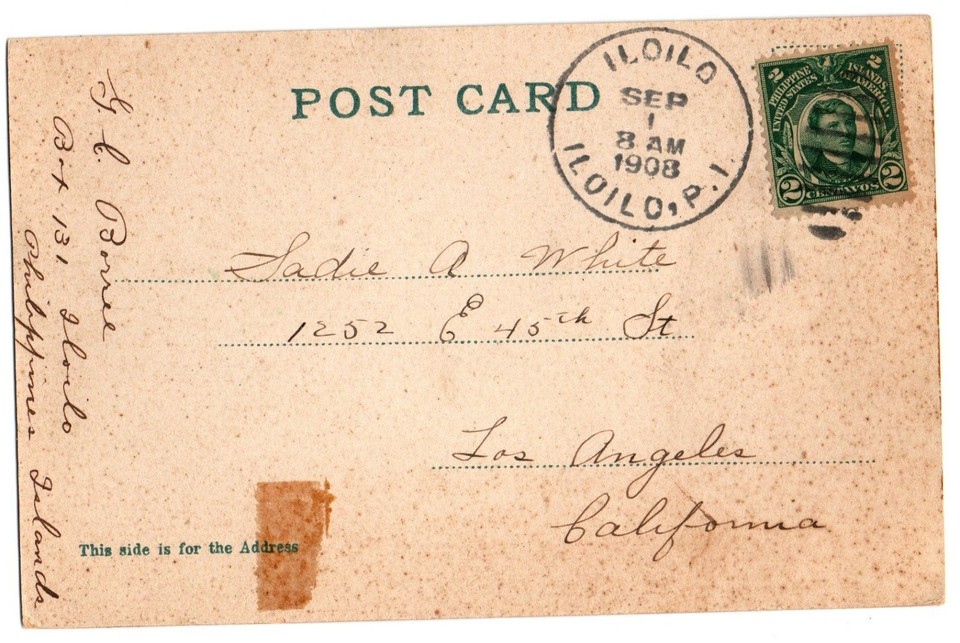 POST CARD
ILOILO
SEP
1
8 AM
1908
ILOILO, P.I.
2 2
PHILIPPINE ISLANDS
UNITED STATES OF AMERICA
2 CENTAVOS 2
Sadie A White
1252 E 45th St
Los Angeles
California
G C Borree
Box 131 Iloilo
Philippines Islands
This side is for the Address